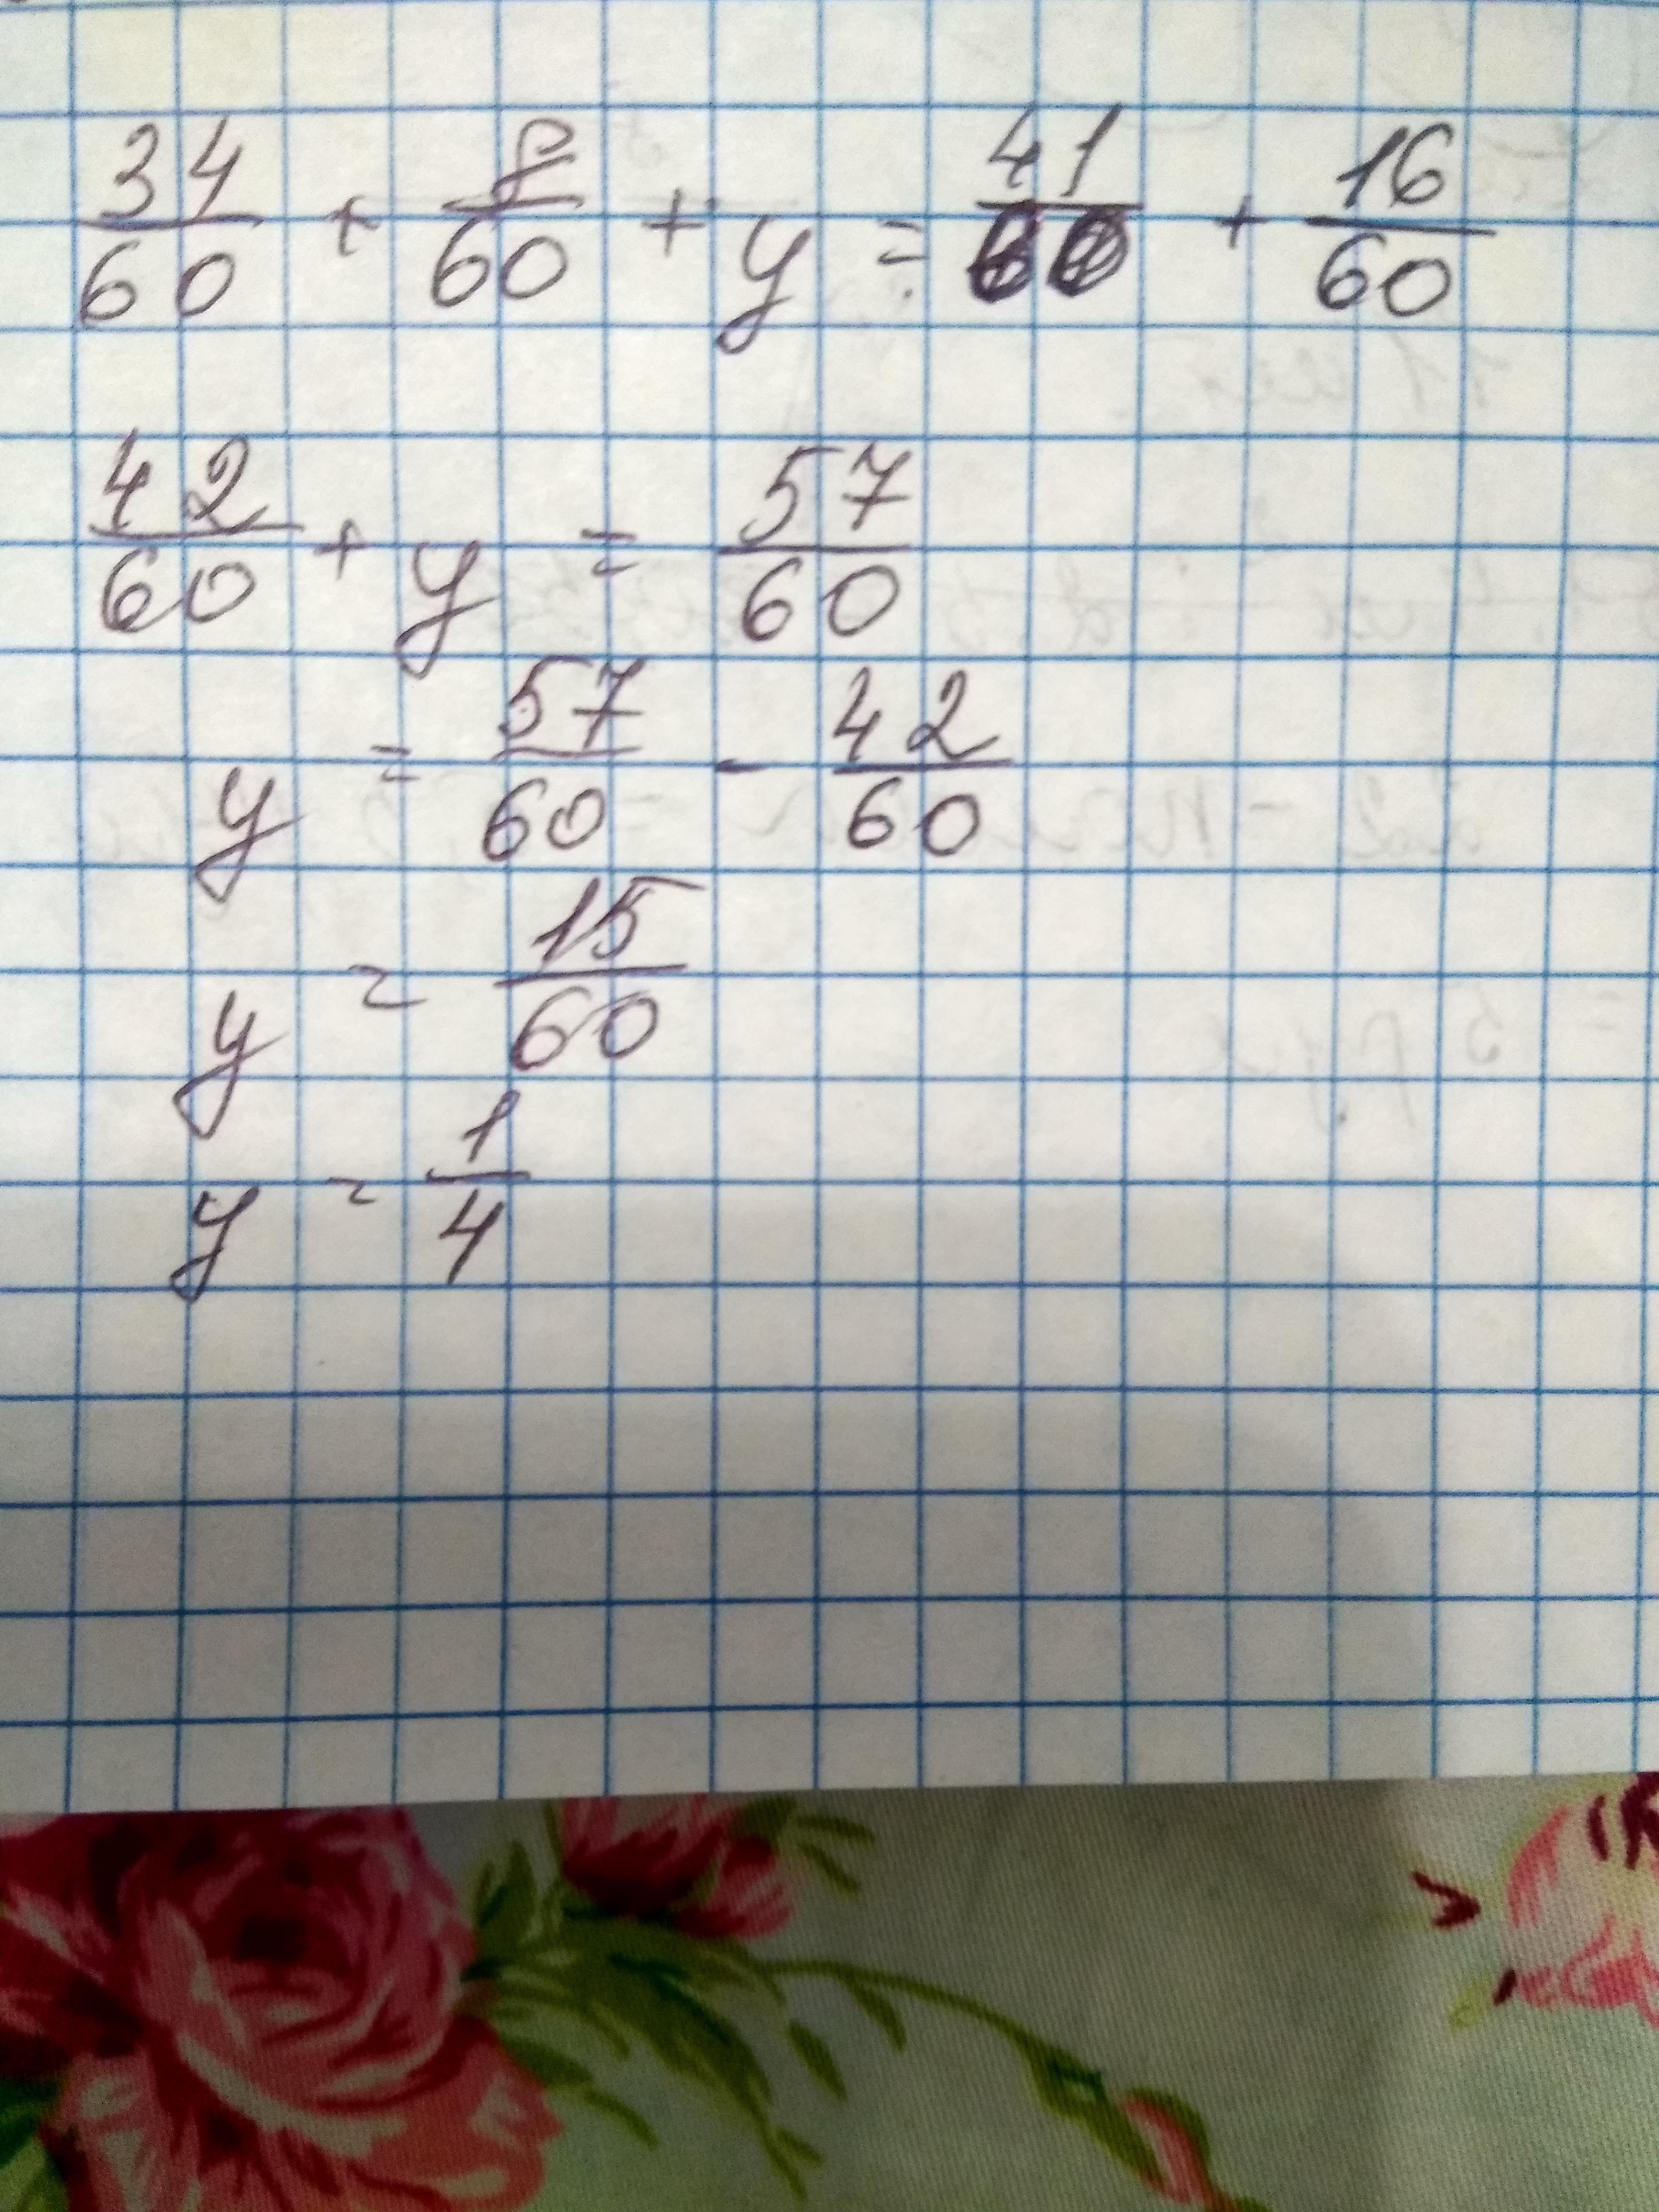 34/60 + 8/60 + y = 41/60 + 16/60
42/60 + y = 57/60
y = 57/60 - 42/60
y = 15/60
y = 1/4